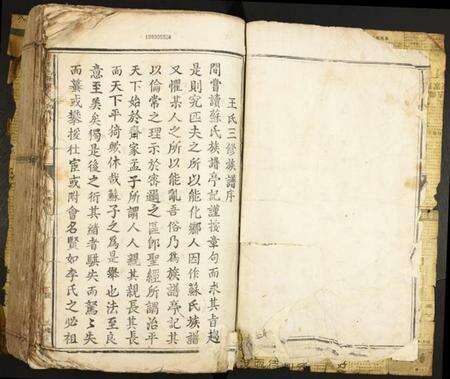 王氏三修族譜序
間嘗讀蘇氏族譜亭記謹按章句而求其旨趣
是則究匹夫之所以能化鄉人因作蘇氏族譜
又懼某人之所以能亂吾俗乃為族譜亭記其
以倫常之理示於密邇之區即聖經所謂治平
天下始於齊家孟子所謂人人親其親長其長
而天下平猗歟休哉蘇子之為是舉也法至良
意至美矣獨是後之衍其緒者騏失而駕失
而蓽或攀援仕宦或附會名賢如李氏之必祖